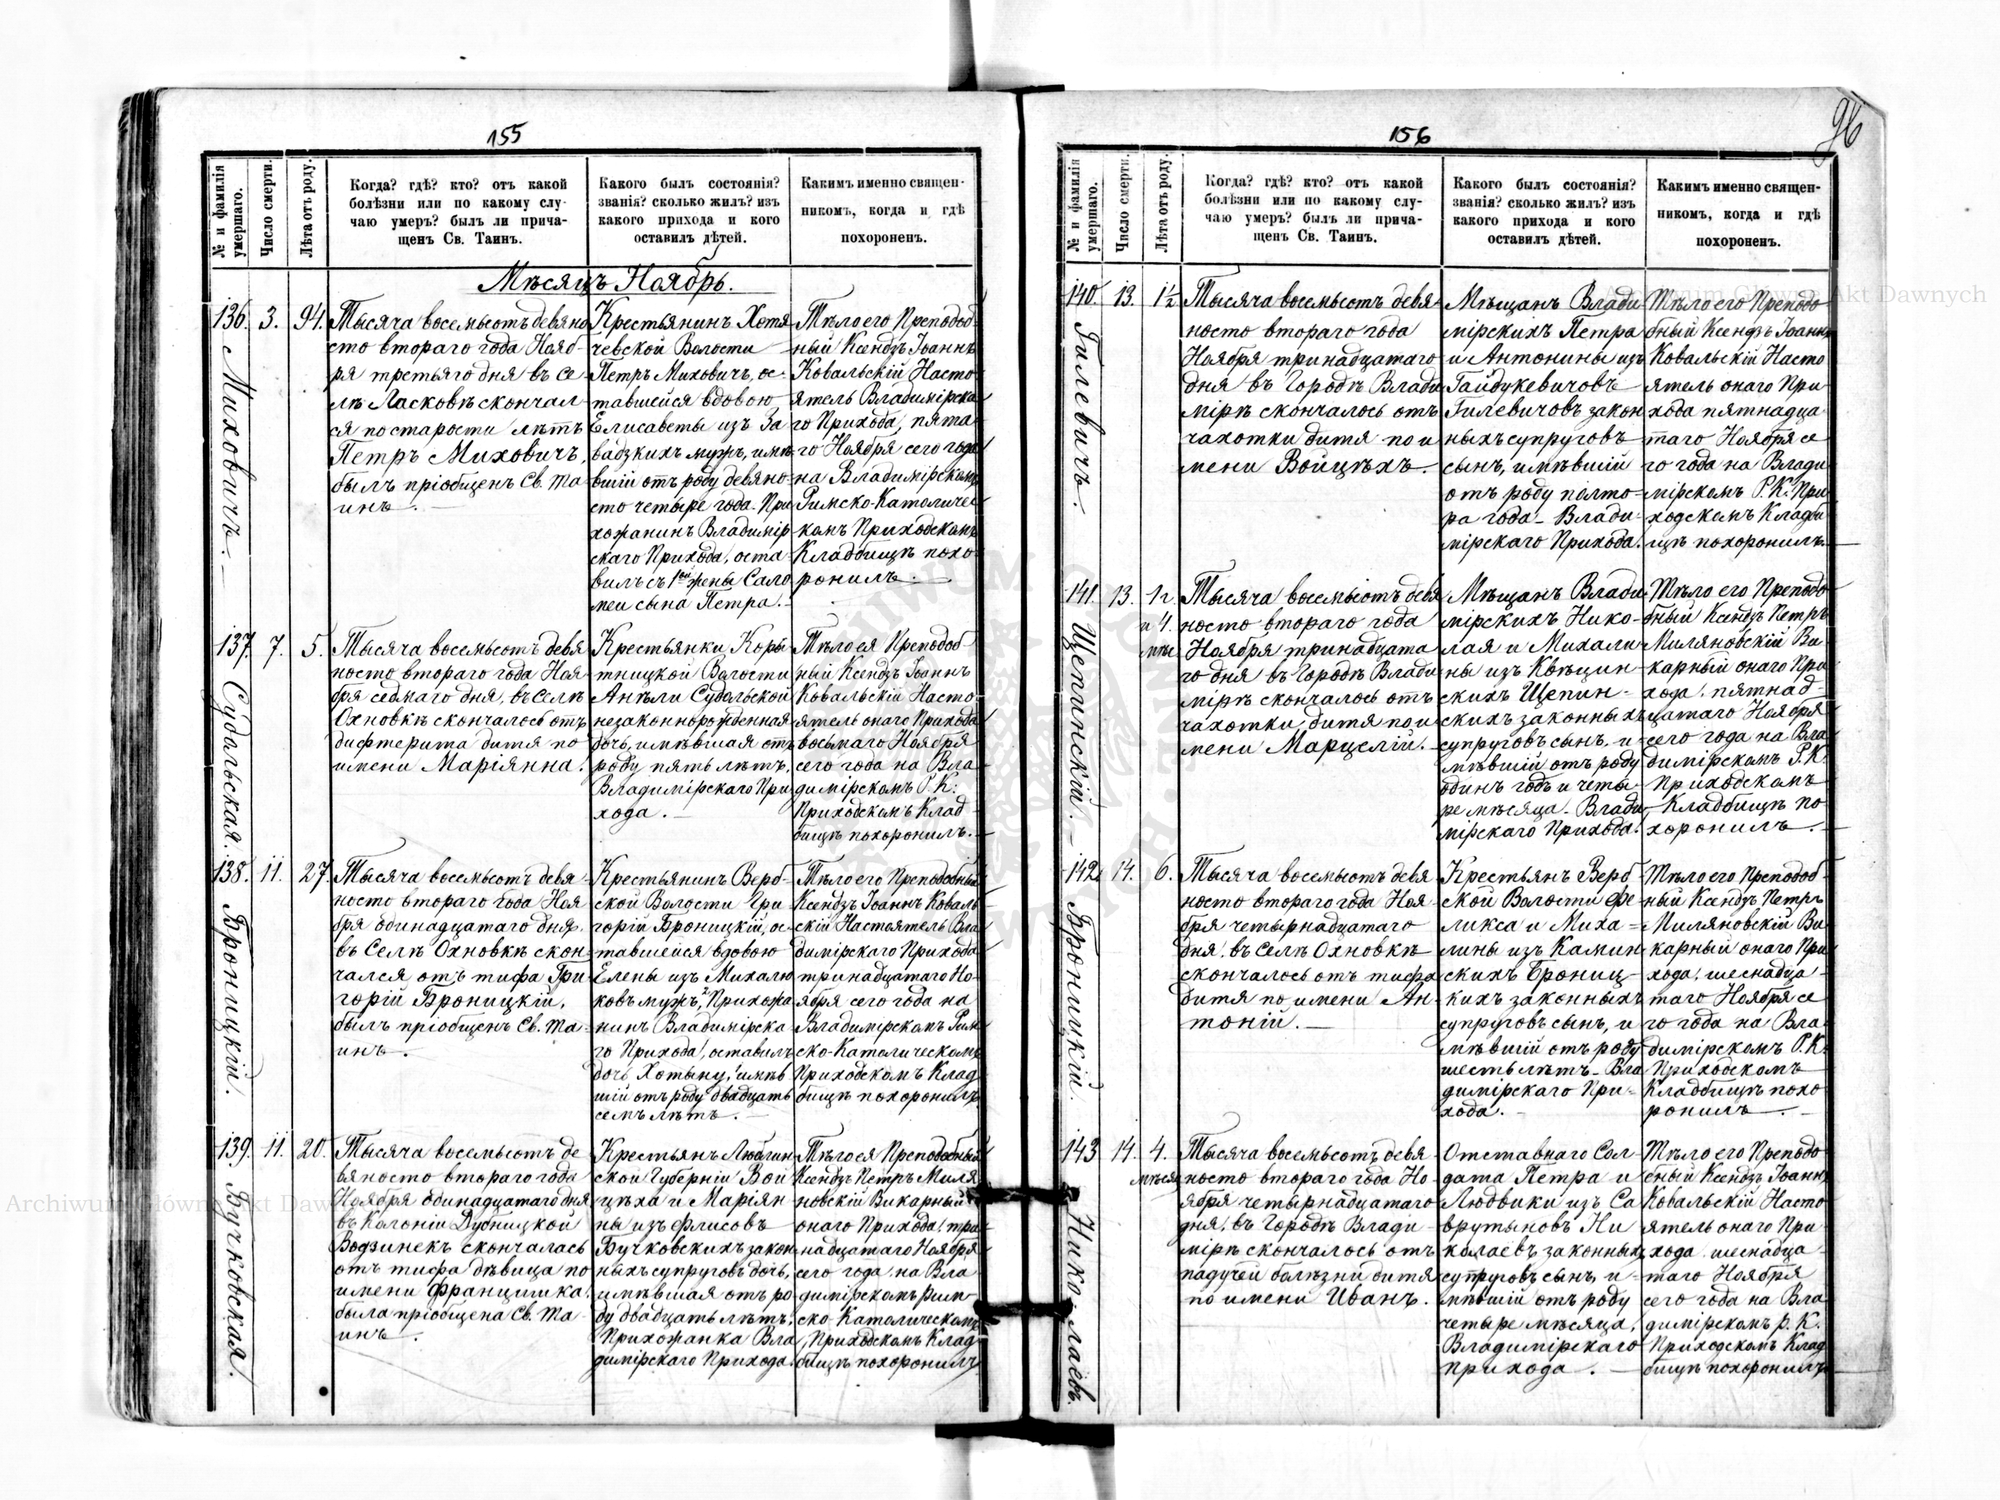 155
№ и фамилія умершаго.
Число смерти.
Лѣта отъ роду.
Когда? гдѣ? кто? отъ какой
болѣзни или по какому слу-
чаю умеръ? былъ ли прича-
щенъ Св. Таинъ.
Какого былъ состоянія?
званія? сколько жилъ? изъ
какого прихода и кого
оставилъ дѣтей.
Какимъ именно священ-
никомъ, когда и гдѣ
похороненъ.
Мѣсяцъ Ноябрь.
136.
Миховичъ.
3.
94.
Тысяча восемьсотъ девяно
сто втораго года Нояб-
ря третьяго дня въ се-
лѣ Ласковѣ скончал-
ся по старости лѣтъ
Петръ Миховичъ,
былъ пріобщенъ Св. Та-
инъ.
Крестьянинъ Хотя
чевской Волости
Петръ Миховичъ, ос-
тавшейся вдовою
Елисаветы изъ За
вадзкихъ мужъ, имѣ
вшій отъ роду девяно-
сто четыре года. При
хожанинъ Владимір
скаго Прихода, оста
вилъ съ 1ой жены Сало
меи сына Петра.
Тѣло его Преподоб
ный Ксендзъ Іоаннъ
Ковальскій Насто
ятель Владимірска
го Прихода, пята-
го Ноября сего года
на Владимірскомъ
Римско-Католичес
комъ Приходскомъ
Кладбищѣ похо
ронилъ.
137.
Судольская.
7.
5.
Тысяча восемьсотъ девя
носто втораго года Ноя-
бря седьмаго дня, въ Селѣ
Охновкѣ скончалось отъ
дифтерита дитя по
имени Маріянна.
Крестьянки Коры
тницкой Волости
Анѣли Судольской
незаконнорожденная
дочь, имѣвшая отъ
роду пять лѣтъ,
Владимірскаго При
хода.
Тѣло ея Преподоб
ный Ксендзъ Іоаннъ
Ковальскій Насто
ятель онаго Прихода
восьмаго Ноября
сего года на Вла
димірскомъ Р. К.
Приходскомъ Клад-
бищѣ похоронилъ.
138.
Броницкій.
11.
27.
Тысяча восемьсотъ девя-
носто втораго года Ноя
бря одинадцатаго дня,
въ Селѣ Охновкѣ скон
чался отъ тифа Гри
горій Броницкій,
былъ пріобщенъ Св. Та-
инъ.
Крестьянинъ Верб-
ской Волости Гри
горій Броницкій, ос-
тавшейся вдовою
Елены изъ Михалю
ковъ мужъ, Прихожа
нинъ Владимірска
го Прихода, оставилъ
дочь Хотыну, имѣв
шій отъ роду двадцать
семь лѣтъ.
Тѣло его Преподобный
Ксендзъ Іоаннъ Коваль
скій Настоятель Вла
димірскаго Прихода
тринадцатаго Но-
ября сего года на
Владимірскомъ Рим
ско-Католическомъ
Приходскомъ Клад
бищѣ похоронилъ.
139.
Бучковская.
11.
20.
Тысяча восемьсотъ де
вяносто втораго года
Ноября одинадцатаго дня
въ Колоніи Дубницкой
Водзинекъ скончалась
отъ тифа дѣвица по
имени Францишка,
была пріобщена Св. Та-
инъ.
Крестьянъ Люблин
ской Губерніи Вой
цѣха и Маріян
ны изъ Флисовъ
Бучковскихъ закон
ныхъ супруговъ дочь,
имѣвшая отъ ро
ду двадцать лѣтъ,
Прихожанка Вла
димірскаго Прихода.
Тѣло ея Преподобный
Ксендзъ Петръ Миля
новскій Викарный
онаго Прихода, три
надцатаго Ноября
сего года, на Вла
димірскомъ Рим-
ско-Католическомъ
Приходскомъ Клад
бищѣ похоронилъ.
156
96
№ и фамилія умершаго.
Число смерти.
Лѣта отъ роду.
Когда? гдѣ? кто? отъ какой
болѣзни или по какому слу-
чаю умеръ? былъ ли прича-
щенъ Св. Таинъ.
Какого былъ состоянія?
званія? сколько жилъ? изъ
какого прихода и кого
оставилъ дѣтей.
Какимъ именно священ-
никомъ, когда и гдѣ
похороненъ.
140.
Гилевичъ.
13.
1½
Тысяча восемьсотъ девя-
носто втораго года
Ноября тринадцатаго
дня въ Городѣ Влади
мірѣ скончалось отъ
чахотки дитя по и
мени Войцѣхъ.
Мѣщанъ Влади
мірскихъ Петра
и Антонины изъ
Гайдукевичовъ
Гилевичовъ закон
ныхъ супруговъ
сынъ, имѣвшій
отъ роду полто-
ра года - Влади-
мірскаго Прихода.
Тѣло его Преподо
бный Ксендзъ Іоаннъ
Ковальскій Насто
ятель онаго При
хода пятнадца
таго Ноября се
го года на Влади
мірскомъ Р. К. При
ходскомъ Кладби
щѣ похоронилъ.
141.
Щепинскій.
13.
1 г.
и 4.
мѣс.
Тысяча восемьсотъ девя
носто втораго года
Ноября тринадцата
го дня въ Городѣ Влади
мірѣ скончалось отъ
чахотки, дитя по и
мени Марцелій.
Мѣщанъ Влади
мірскихъ Нико-
лая и Михали
ны изъ Квѣцин-
скихъ Щепин-
скихъ законныхъ
супруговъ сынъ, и-
мѣвшій отъ роду
одинъ годъ и четы
ре мѣсяца - Влади
мірскаго Прихода.
Тѣло его Преподо
бный Ксендзъ Петръ
Миляновскій Ви-
карный онаго При
хода, пятнад-
цатаго Ноября
сего года на Вла
димірскомъ Р. К.
Приходскомъ
Кладбищѣ по
хоронилъ.
142.
Броницкій.
14.
6.
Тысяча восемьсотъ девя
носто втораго года Ноя-
бря четырнадцатаго
дня, въ Селѣ Охновкѣ
скончалось отъ тифа
дитя по имени Ан
тоній.
Крестьянъ Верб-
ской Волости Фе
ликса и Миха-
лины изъ Камин
скихъ Брониц-
кихъ законныхъ
супруговъ сынъ, и
мѣвшій отъ роду
шесть лѣтъ - Вла
димірскаго При-
хода.
Тѣло его Преподоб-
ный Ксендзъ Петръ
Миляновскій Ви
карный онаго При
хода, шеснадца-
таго Ноября се
го года на Вла
димірскомъ Р. К.
Приходскомъ
Кладбищѣ похо
ронилъ.
143.
Николаевъ.
14.
4.
мѣсяц.
Тысяча восемьсотъ девя
носто втораго года Но-
ября четырнадцатаго
дня, въ Городѣ Влади-
мірѣ скончалось отъ
падучей болѣзни дитя
по имени Иванъ.
Отставнаго Сол-
дата Петра и
Людвики изъ Са
врутыновъ Ни
колаевъ законныхъ
супруговъ сынъ, и-
мѣвшій отъ роду
четыре мѣсяца,
Владимірскаго
прихода.
Тѣло его Преподо
бный Ксендзъ Іоаннъ
Ковальскій Насто
ятель онаго При
хода шеснадца-
таго Ноября
сего года на Вла
димірскомъ Р. К.
Приходскомъ Клад
бищѣ похоронилъ.
Archiwum Główne Akt Dawnych
Archiwum Główne Akt Dawnych